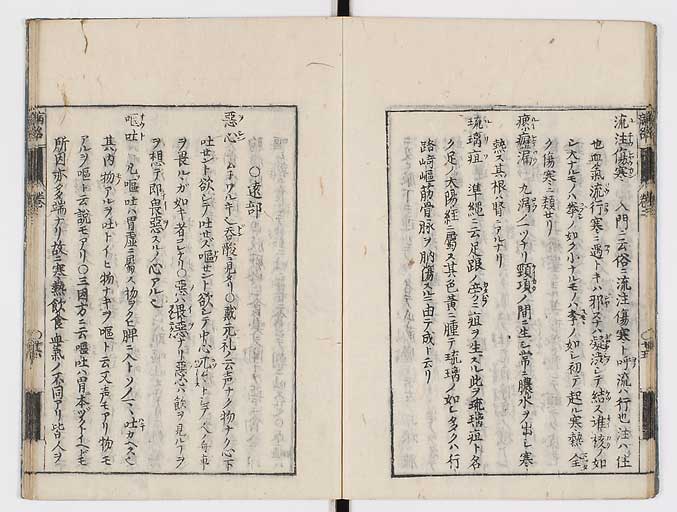 流注傷寒 入門ニ云俗ニ流注傷寒ト呼流ハ行也注ハ住
也血氣流行寒ニ遇トキハ邪スナハ凝滞シテ結ス堆核ノ如
シ大ナルモノハ拳ノ如ク小ナルモノハ李ノ如シ初テ起ル寒熱全
ク傷寒ニ類セリ
瘰癧漏 九漏ノ一ツナリ頸項ノ間ニ生シ常ニ膿水ヲ出シ寒
熱ス其根ハ腎ニアルナリ
琉璃疽 準繩ニ云足跟ノ疽ヲ生スル此ヲ琉璃疽ト名
ク足ノ太陽經ニ屬ス其色黄ニ腫テ琉璃ノ如シタクハ行
路崎嶇筋骨脉ヲ傷ルニ由テ成ト云リ
○遠部
惡心 ムネワルキ 呑酸ニ見タリ○戴元礼ノ云声ナク物ナク心下
吐セント欲シテ吐セズ嘔セント欲シテ中心兀兀トシテ人ノ舟車
ヲ畏ルヽガ如キ者コレナリ○惡ハ畏惡ナリ惡心ハ飲ヲ見ルヲ
ヲ想テ即畏惡スルノ心アルベシ
嘔吐 凡嘔吐ハ胃虚ニ屬ス物ヲクヒ脾ニ入トソノマヽ吐カヘスヘシ
其内物アルヲ吐トイヒ物ナキヲ嘔ト云又声モアリ物モ
アルヲ嘔ト云説モアリ○三因方ニ云嘔吐ハ胃本ヅクトイヘドモ
所因亦多端ナリ故ニ寒熱飲食血氣ノ不同アリ皆人ヲ